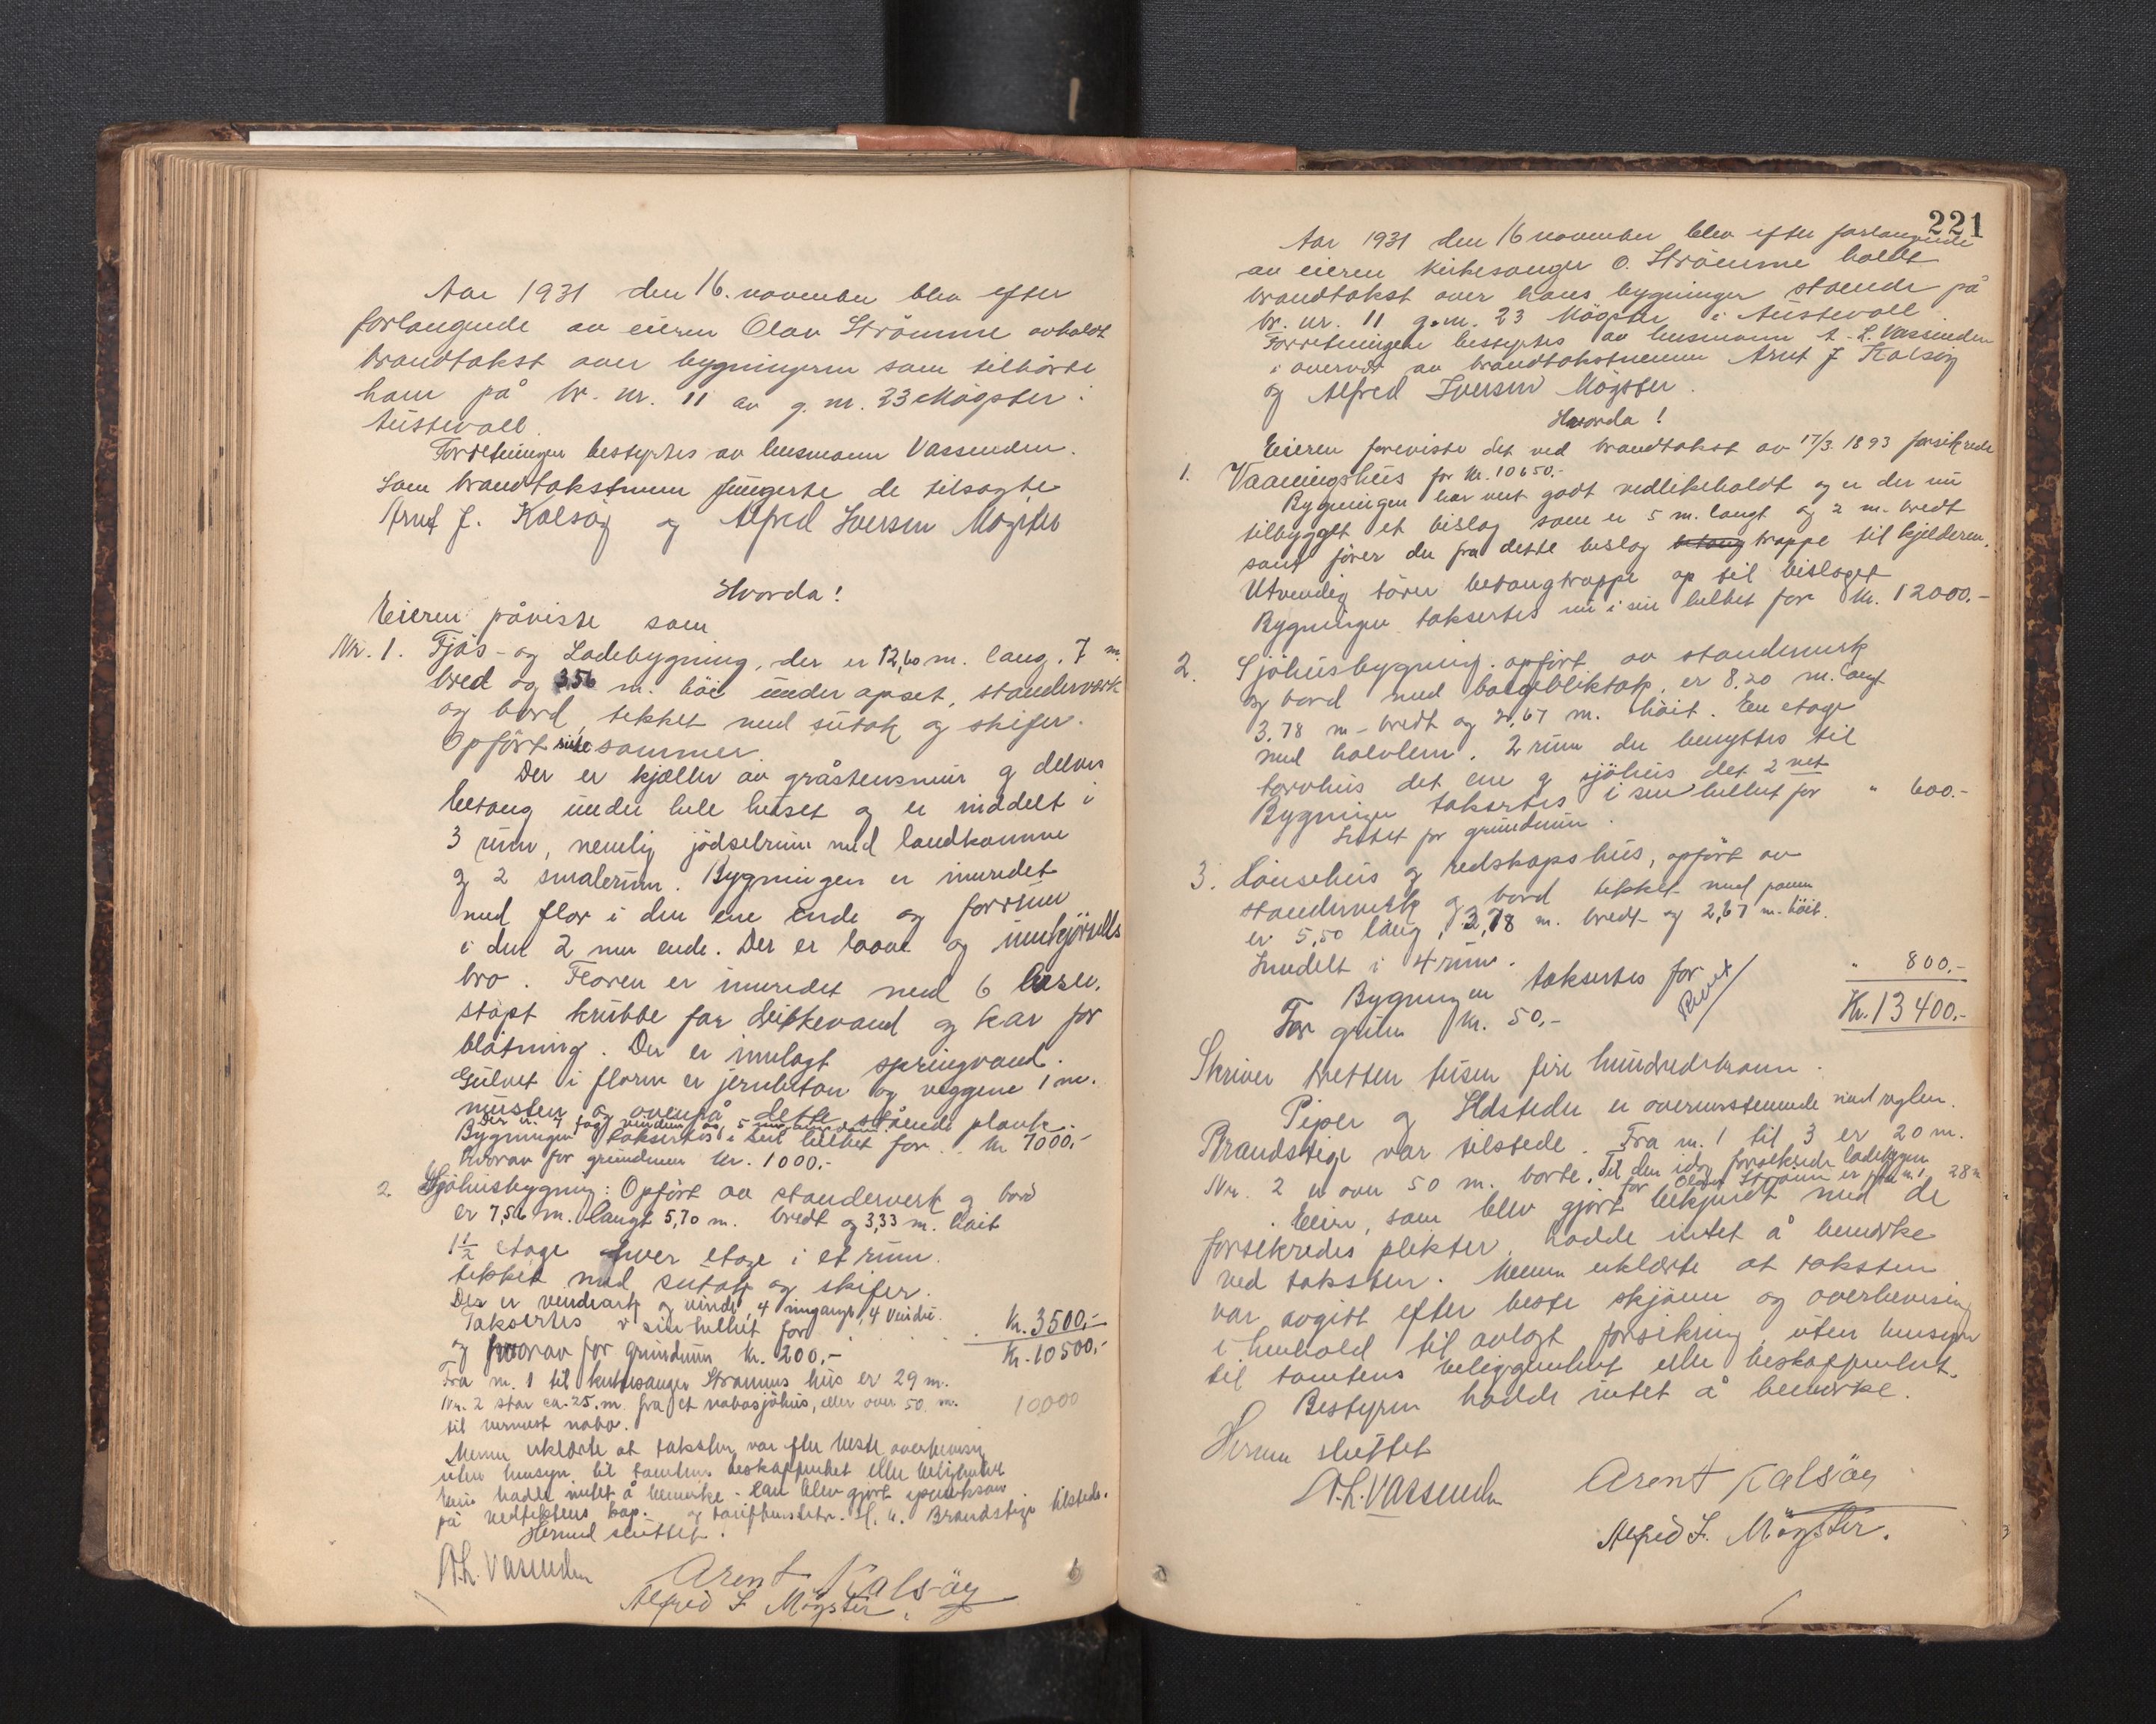 Aar 1931 den 16. november blev efter
forlangende av eieren Olav Strömme avholdt
brandtakst over bygningerne som tilhörte
ham på br. nr. 11 av g. nr. 23 Mögster i
Austevoll.
Forretningen bestyrtes av lensmann Vassenden.
Som brandtakstmenn fungerte de tilsagte
Arnt J. Kalsöy og Alfred Iversen Mögster
Hvorda!
Eieren påviste som
Nr. 1. Fjös- og Ladebygning, der er 12,60 m. lang, 7 m.
bred og 3,56 m. höi under opset, standerverk
og bord, tekket med sutak og skifer.
Opfört siste sommer.
Der er kjeller av gråstensmur og delvis
betong under hele huset og er inddelt i
3 rum, nemlig jödselrum med landkomme
og 2 smalerum. Bygningen er innredet
med flor i den ene ende og forrum
i den 2 nen ende. Der er laave og innkjörsels
bro. Floren er innredet med 6 baser,
stöpt krubbe for drikkevand og kar for
blötning. Der er innlagt springvand.
Gulvet i floren er jernbeton og veggene 1 m.
mursten og ovenpå dette stående plank.
Der er 4 fag vinduer og 5
Bygningen taksertes i sin helhet for . . kr 7000,-
Hvorav for grundmur kr. 1000,-
2. Sjöhusbygning: Opfört av standerverk og bord
er 7,56 m. langt 5,70 m. bredt og 3,33 m. höit
1½ etage hver etage i et rum.
tekket med sutak og skifer.
Der er vendeark og vinde, 4 inngange, 4 vinduer.
Taksertes i sin helhet for . . . Kr. 3500,-
og hvorav for grundmur kr. 200,- Kr. 10500,-
Fra nr. 1 til kirkesanger Strömmes hus er 29 m.
Nr. 2 står ca. 25 m. fra et nabosjöhus, eller over 50 m. 10,000
til nermest nabo.
Menn erklærte at taksten var efter beste overbevisning
uten hensyn til tomtens beskaffenhet eller beliggenhet
Eieren hadde intet å bemerke. Han blev gjort opmerksom
på vedtektens kap. og Brandstige tilstede.
Hermed sluttet.
A. L. Vassenden Arent Kalsöy
Alfred I. Mögster.
221
Aar 1931 den 16 november blev efter forlangende
av eieren kirkesanger O. Strömme holdt
brandtakst over hans bygninger stående på
br. nr. 11 g. nr. 23 Mögster i Austevoll.
Forretningen bestyrtes av lensmann A. L. Vassenden
i overvær av brandtakstmenn Arnt J Kalsöy
og Alfred Iversen Mögster.
Hvorda!
Eieren foreviste det ved brandtakst av 17/3. 1893 forsikrede
1. Vaaningshus for kr. 10650.-
Bygningen har vert godt vedlikeholdt og er der nu
tilbygget et bislag som er 5 m. langt og 2 m. bredt
samt förer der fra dette bislag betong trappe til kjelderen.
Utvendig förer betongtrappe op til bislaget
Bygningen taksertes nu i sin helhet for Kr. 12000.-
2. Sjöhusbygning. opfört av standerverk
og bord med bölgebliktak, er 8,20 m. langt
3,78 m. bredt og 2,67 m. höit. En etage
med halvlem. 2 rum der benyttes til
torvhus det ene og sjöhus det 2 net
Bygningen taksertes i sin helhet for " 600.-
Intet for grundmur.
3. Hönsehus og redskapshus, opfört av
standerverk og bord tekket med panner
er 5,50 lang, 3,78 m. bredt og 2,67 m. höit.
Inndelt i 4 rum.
Bygningen taksertes for " 800.-
For grunm kr. 50,- Kr. 13400.-
Skriver tretten tusen fire hundrede kroner.
Piper og Ildsteder er overensstemmende med reglen.
Brandstige var tilstede. Fra nr. 1 til 3 er 20 m.
Nr. 2 er over 50 m. borte. Til den idag forsikrede ladebygn
for Olav Strömme er fra nr. 1 28 m
Eieren, som blev gjort bekjendt med de
forsikredes plikter, hadde intet å bemerke
ved taksten. Menn erklærte at taksten
var avgitt efter beste skjönn og overbevisning
i henhold til avlagt forsikring, uten hensyn
til tomtens beliggenhet eller beskaffenhet.
Bestyren hadde intet å bemerke.
Hermed sluttet
A. L. Vassenden Arent Kalsöy
Alfred I. Mögster.